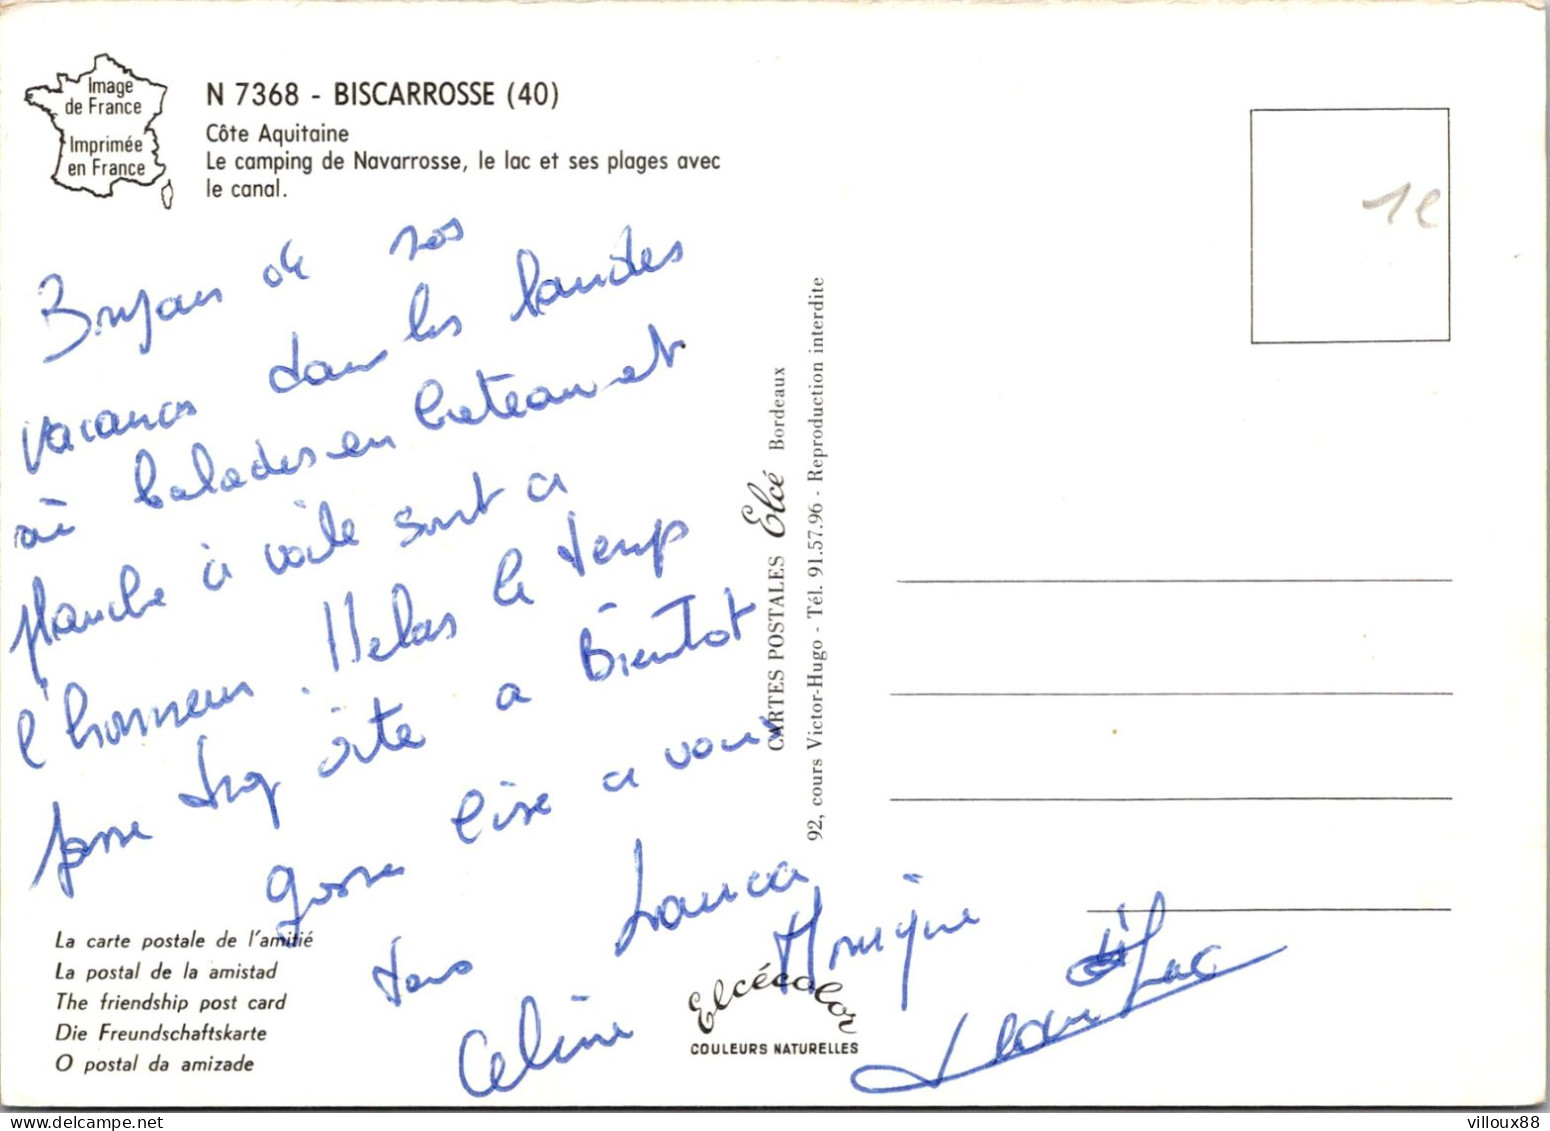 Image
de France
Imprimée
en France
N 7368 - BISCARROSSE (40)
Côte Aquitaine
Le camping de Navarrosse, le lac et ses plages avec
le canal.
1€
Bonjour de nos
vacances dans les landes
où balades en bateau et
planche à voile sont a
l'honneur. Helas le temps
passe trop vite a Bientot
Grosse bise a vous
tous
Celine Monique
Jean Luc
CARTES POSTALES Elcé Bordeaux
92, cours Victor-Hugo - Tél. 91.57.96 - Reproduction interdite
La carte postale de l'amitié
La postal de la amistad
The friendship post card
Die Freundschaftskarte
O postal da amizade
Elcécolor
COULEURS NATURELLES
delcampe.net
villoux88